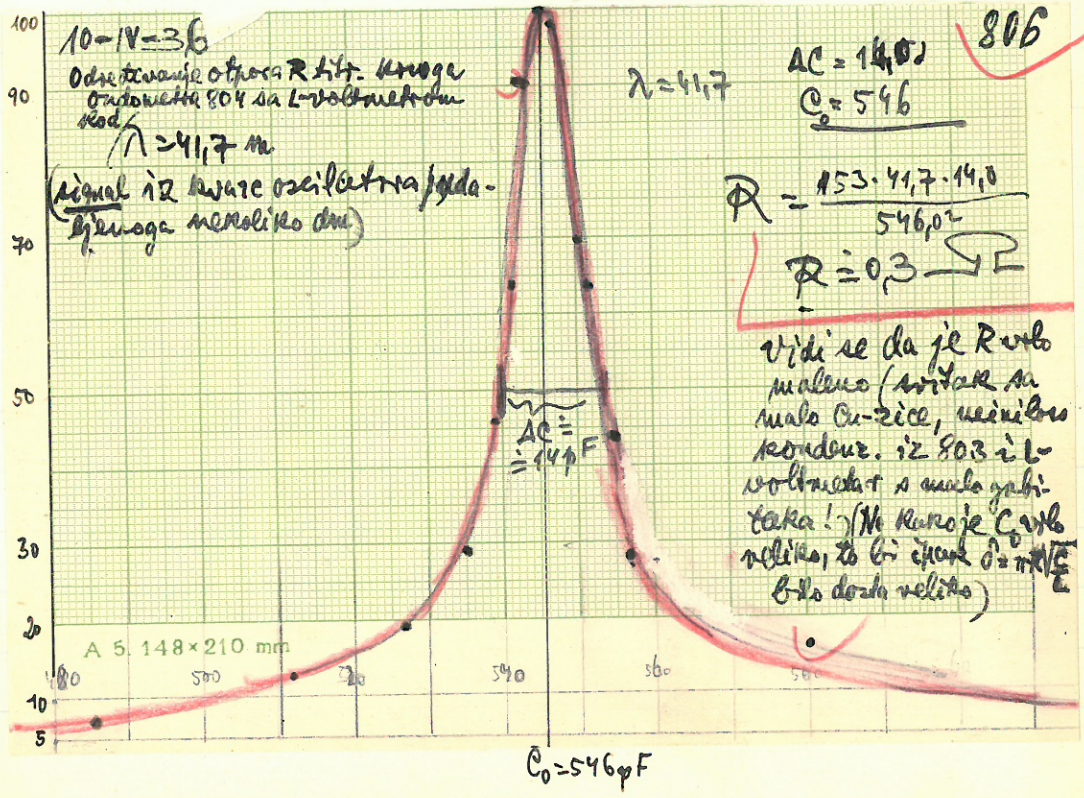 806
10-IV-36
Određivanje otpora R titr. kruga
ondometra 804 sa L-voltmetrom
kod
λ=41,7 m
(signal iz kvarc oscilatora uda-
ljenoga nekoliko dm)
λ=41,7
ΔC = 14,0
C₀= 546
R = 153·41,7·14,0
546,0²
R ≐ 0,3 Ω
Vidi se da je R vrlo
maleno (svitak sa
malo Cu-žice,
kondenz. iz 803 i L-
voltmetar s malo gubi-
taka!) (No kako je C₀ vrlo
veliko, to bi ipak δ=πR√C/L
bilo dosta veliko)
ΔC ≐
≐ 14pF
100
90
70
50
30
20
10
5
A 5. 148×210 mm
480
500
520
540
560
580
C₀=546pF